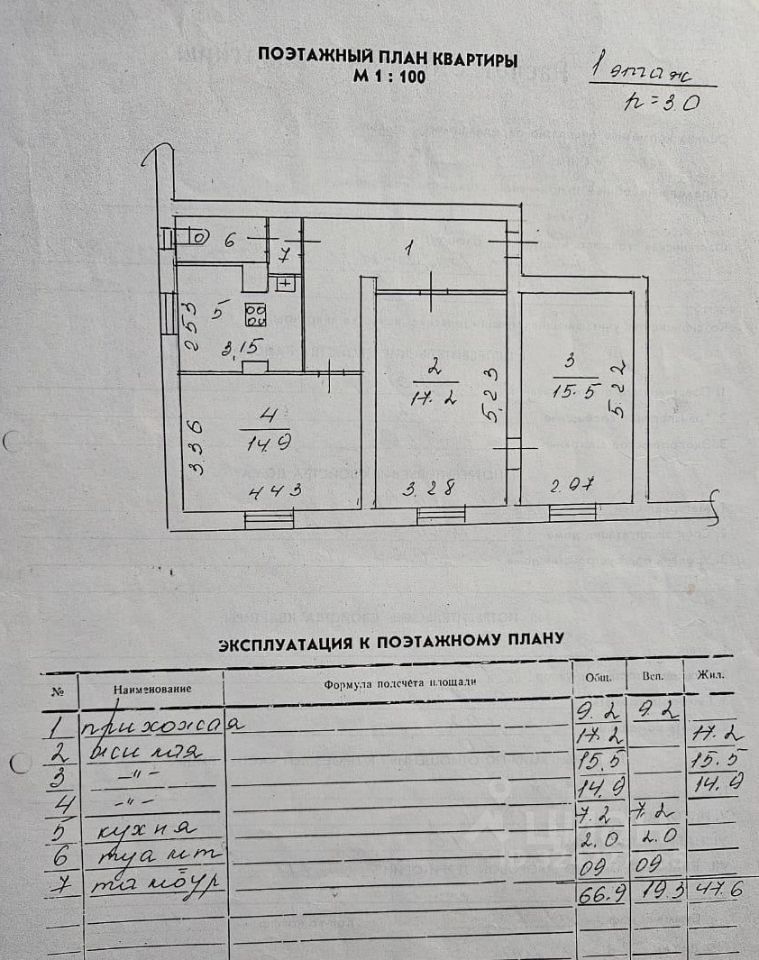 ПОЭТАЖНЫЙ ПЛАН КВАРТИРЫ
М 1 : 100
1 этаж
h = 3.0
6
7
1
5
253
3,15
2
17.2
5,23
3
15.5
5.22
4
14.9
3.36
443
3.28
2.97
ЭКСПЛУАТАЦИЯ К ПОЭТАЖНОМУ ПЛАНУ
№ Наименование Формула подсчета площади Общ. Всп. Жил.
1 прихожая 9.2 9.2
2 жилая 17.2 17.2
3 –"– 15.5 15.5
4 –"– 14.9 14.9
5 кухня 7.2 7.2
6 туалет 2.0 2.0
7 тамбур 09 09
66.9 19.3 47.6